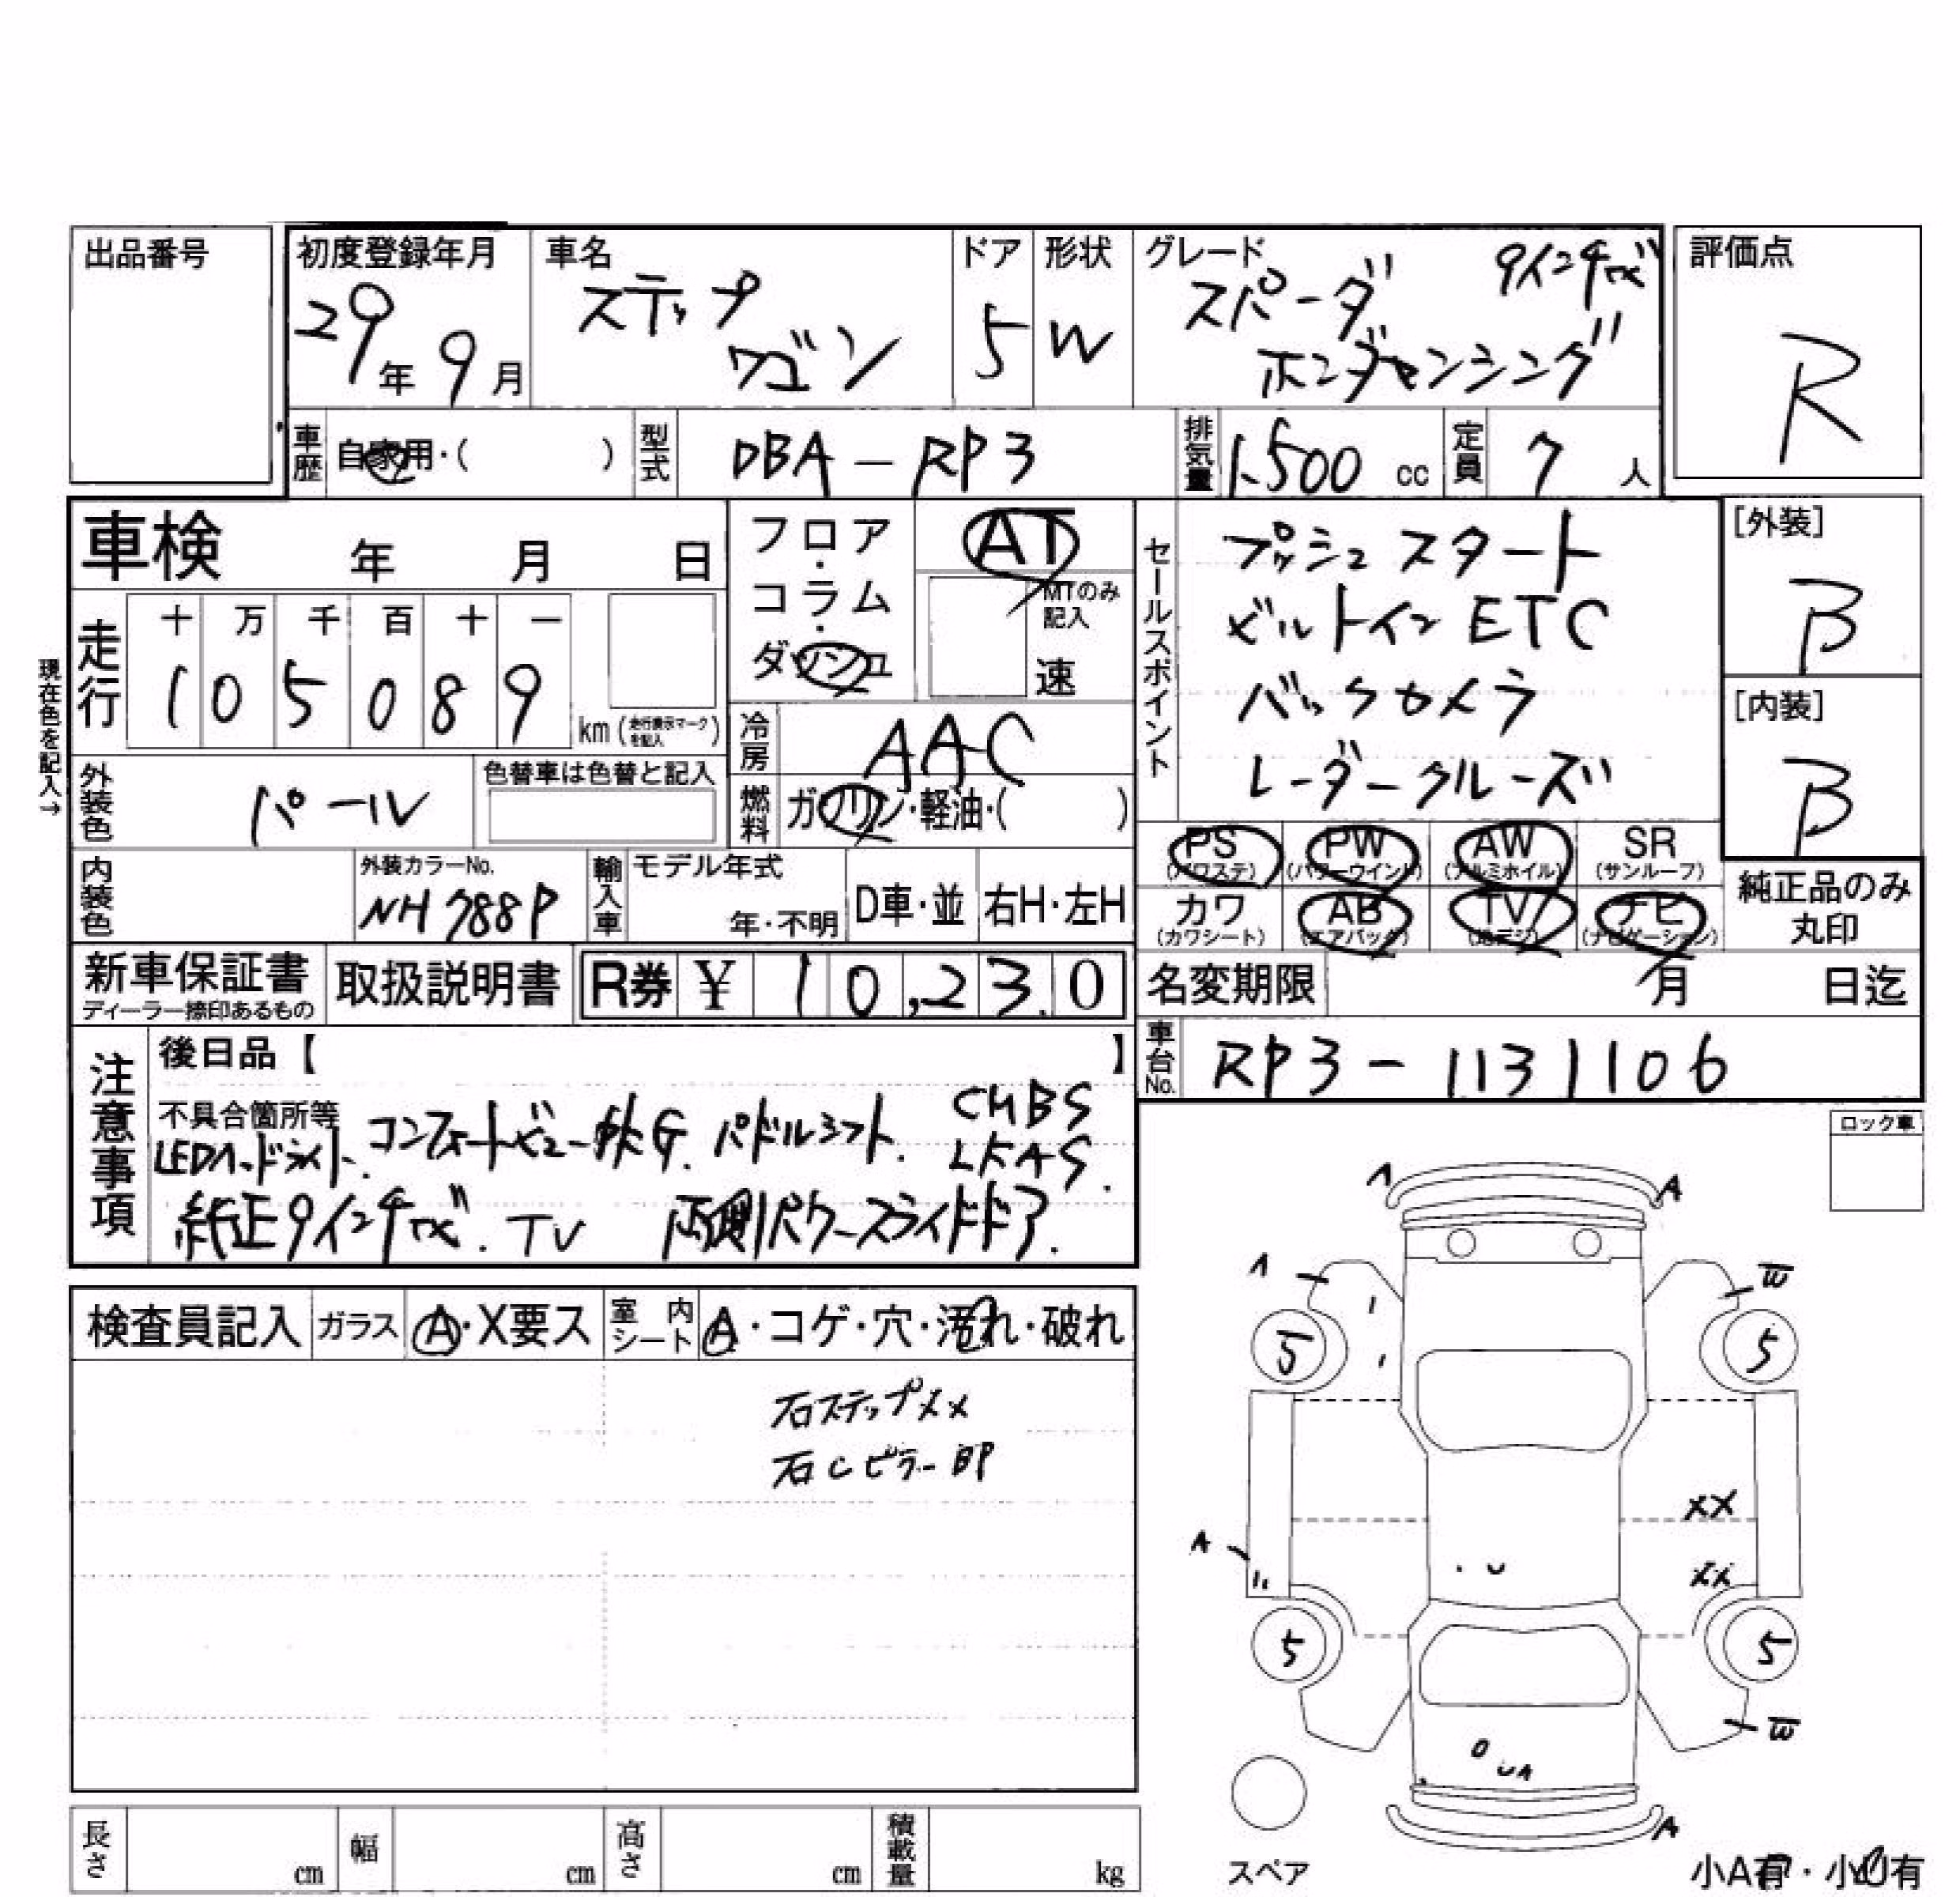 出品番号
初度登録年月
29年 9月
車名
ステップ
ワゴン
ドア
5
形状
W
グレード
スパーダ 9インチナビ
ホンダセンシング
評価点
R
車歴 自家用・( )
型式 DBA-RP3
排気量 1.500 cc
定員 7 人
車検 年 月 日
フロア・コラム・ダッシュ
AT
MTのみ記入
速
セールスポイント
プッシュスタート
ビルトインETC
バックカメラ
レーダークルーズ
[外装]
B
[内装]
B
現在色を記入→
走行
十 万 千 百 十 一
1 0 5 0 8 9
km(走行表示マークを記入)
冷房 AAC
外装色 パール
色替車は色替と記入
燃料 ガソリン・軽油・( )
PS (パワステ)
PW (パワーウインド)
AW (アルミホイル)
SR (サンルーフ)
カワ (カワシート)
AB (エアバッグ)
TV (地デジ)
ナビ (ナビゲーション)
純正品のみ
丸印
内装色
外装カラーNo.
NH788P
輸入車
モデル年式
年・不明
D車・並
右H・左H
新車保証書
ディーラー捺印あるもの
取扱説明書
R券 ¥ 10,230
名変期限 月 日迄
車台No. RP3-1131106
注意事項
後日品【 】
不具合箇所等
LEDヘッドライト. コンフォートビューPKG. パドルシフト. CMBS
LKAS.
純正9インチナビ. TV 両側パワースライドドア.
ロック車
検査員記入
ガラス A・X要ス
室内シート A・コゲ・穴・汚れ・破れ
右ステップXX
右CピラーBP
A A
A W
5 5
XX
A XX
U
5 5
W
UA
A
スペア
小A有・小U有
長さ cm
幅 cm
高さ cm
積載量 kg